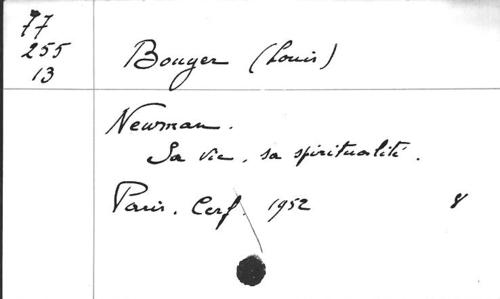 77
255
13
Bouyer (Louis)
Newman.
Sa vie, sa spiritualité.
Paris. Cerf. 1952 8